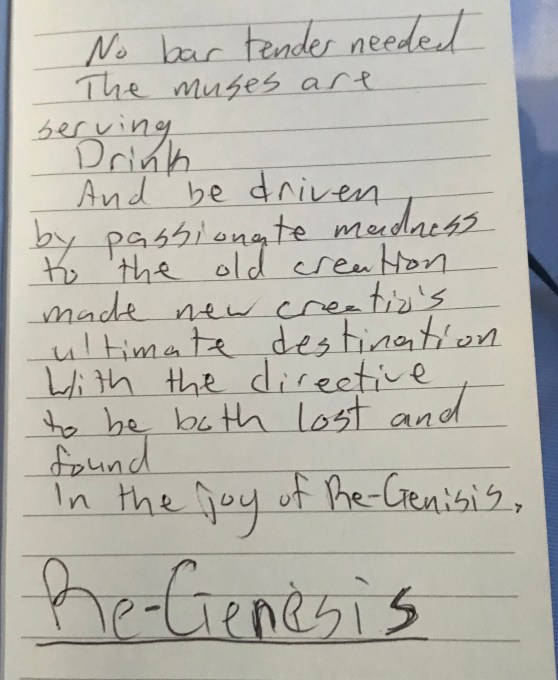 No bar tender needed
The muses are
serving
Drink
And be driven
by passionate madness
to the old creation
made new creatio's
ultimate destination
With the directive
to be both lost and
found
In the joy of Re-Genisis,
Re-Genesis